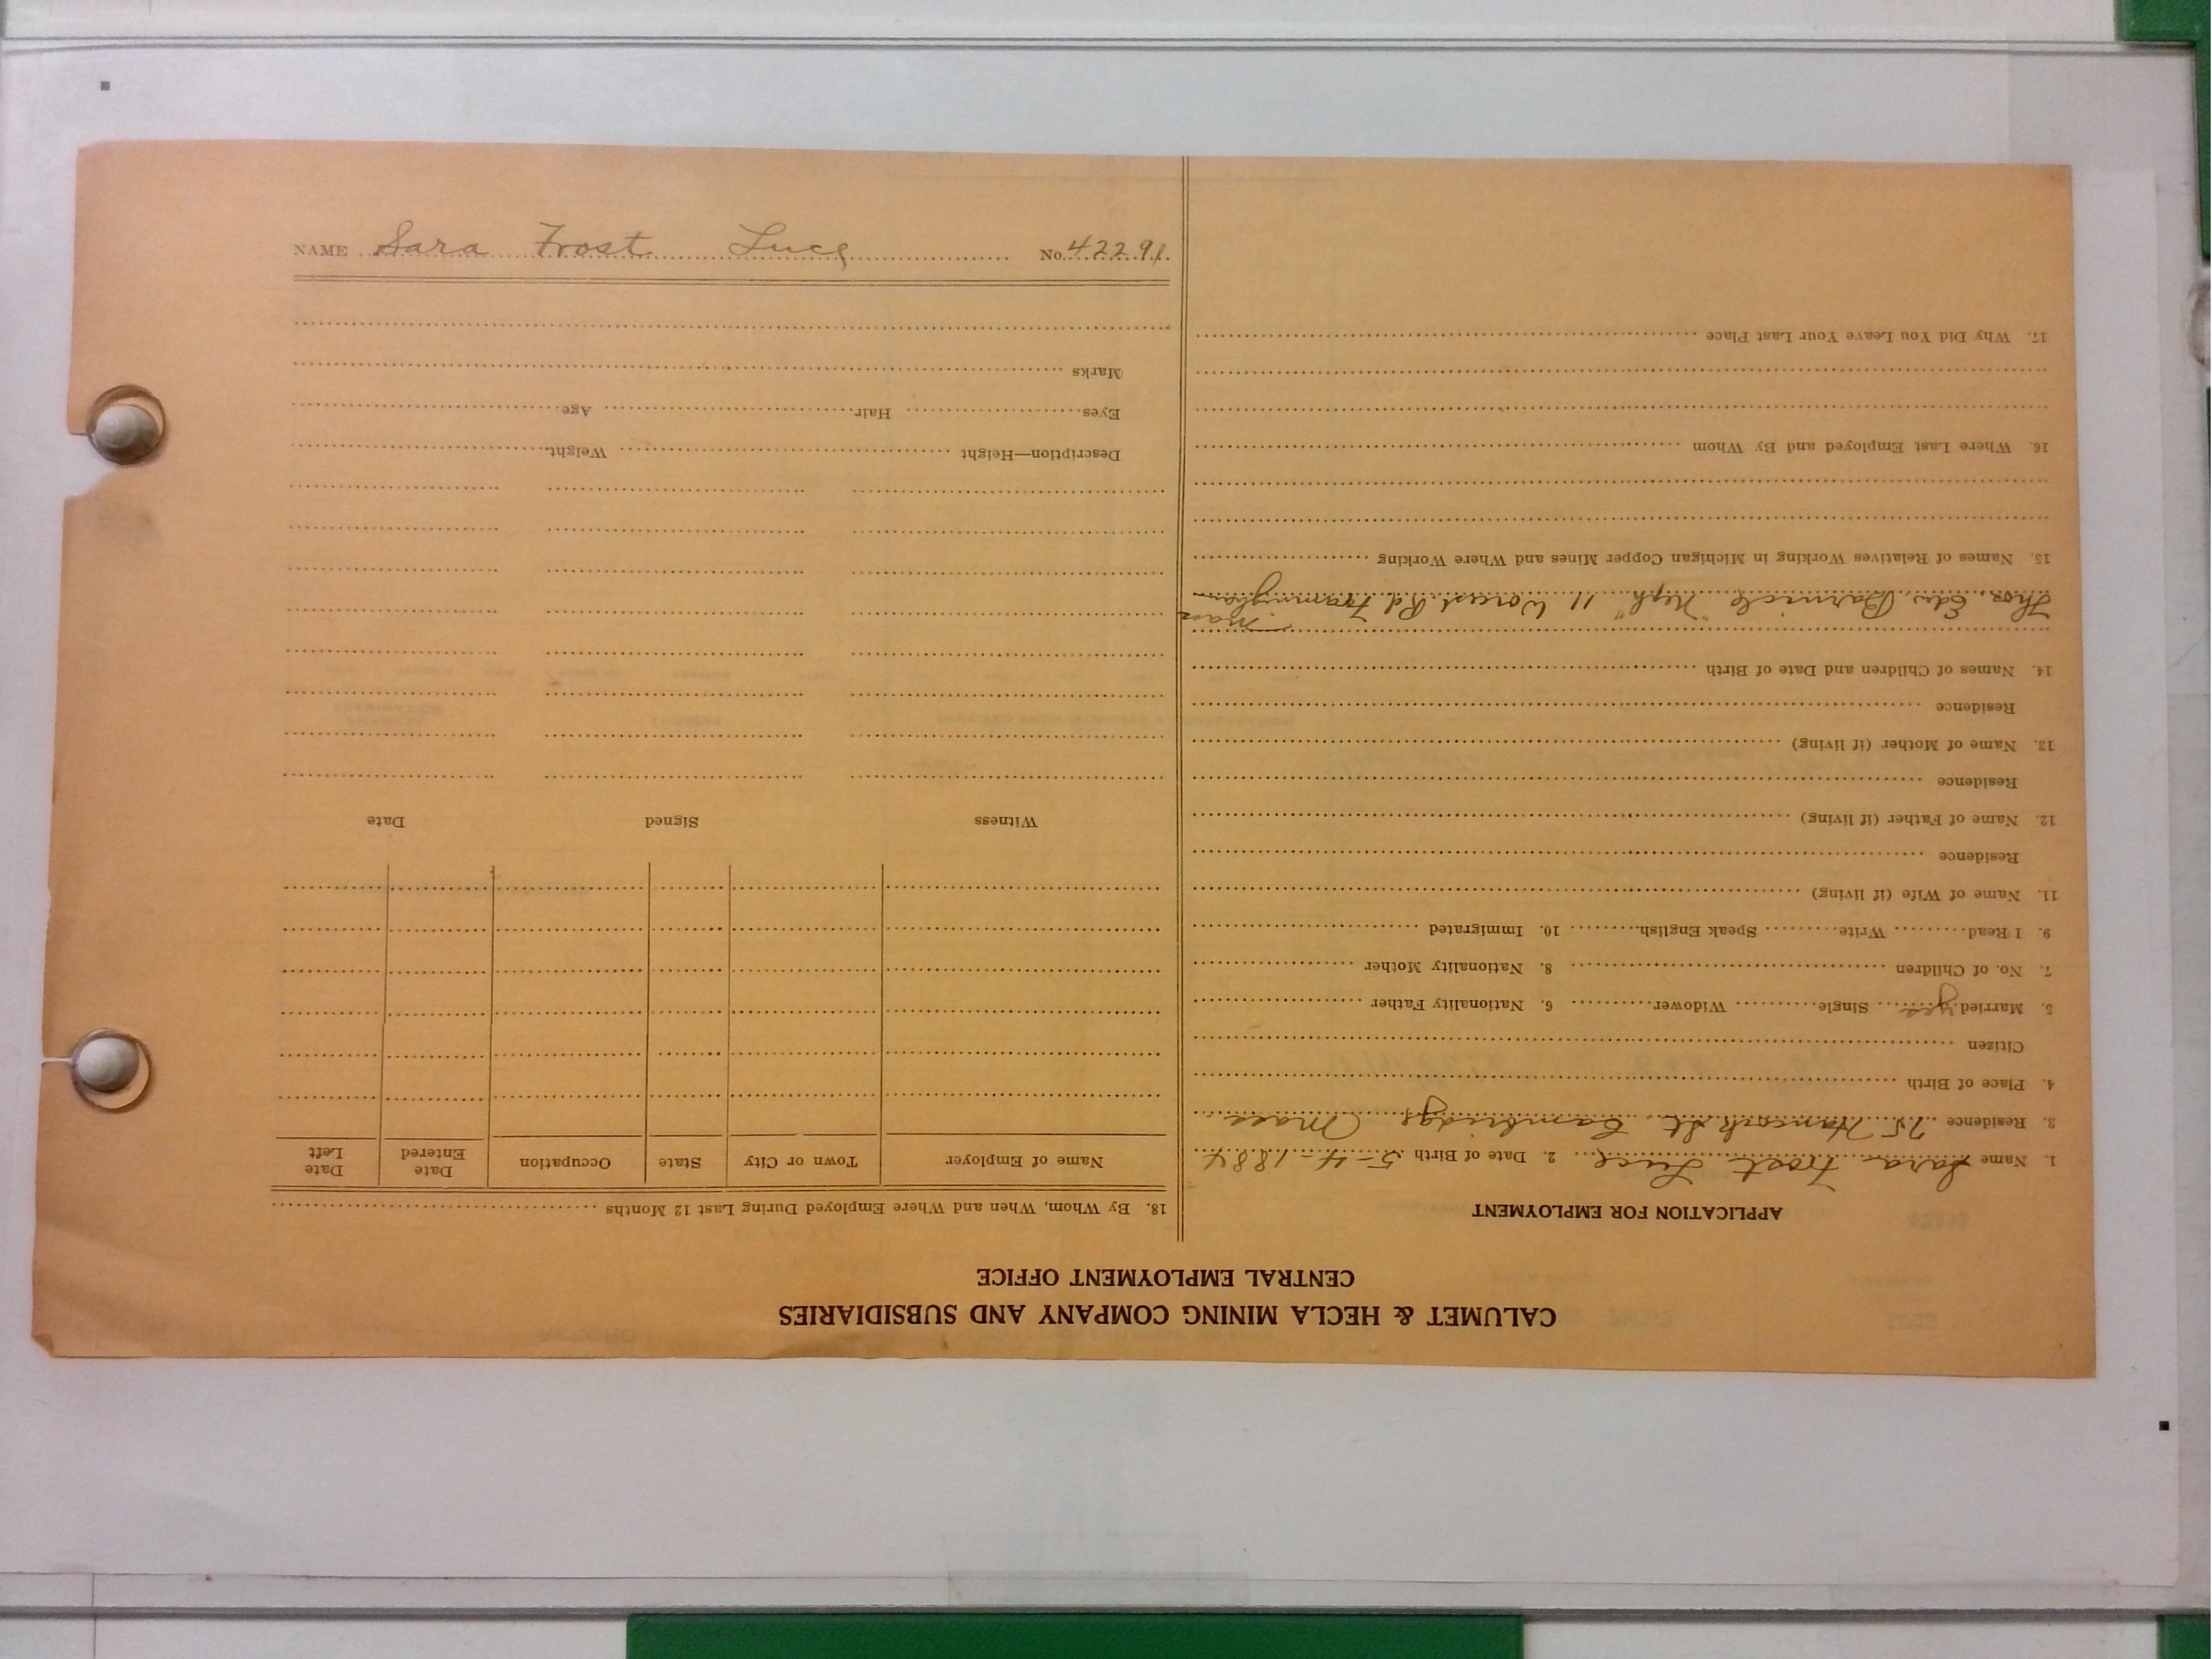 NAME Sara Frost Luce No. 42291
CALUMET & HECLA MINING COMPANY AND SUBSIDIARIES
CENTRAL EMPLOYMENT OFFICE
APPLICATION FOR EMPLOYMENT
1. Name Sara Frost Luce 2. Date of Birth 5-4-1884
3. Residence 75 Hancock St. Cambridge Mass
4. Place of Birth
Citizen
5. Married yes Single Widower 6. Nationality Father
7. No. of Children 8. Nationality Mother
9. I Read Write Speak English 10. Immigrated
11. Name of Wife (if living)
Residence
12. Name of Father (if living)
Residence
13. Name of Mother (if living)
Residence
14. Names of Children and Date of Birth
Mass
Thos. Edw. Barnicle "Neph" 11 Worcest Rd Framingham
15. Names of Relatives Working in Michigan Copper Mines and Where Working
16. Where Last Employed and By Whom
17. Why Did You Leave Your Last Place
18. By Whom, When and Where Employed During Last 12 Months
Name of Employer Town or City State Occupation Date Entered Date Left
Witness Signed Date
Description—Height Weight
Eyes Hair Age
Marks